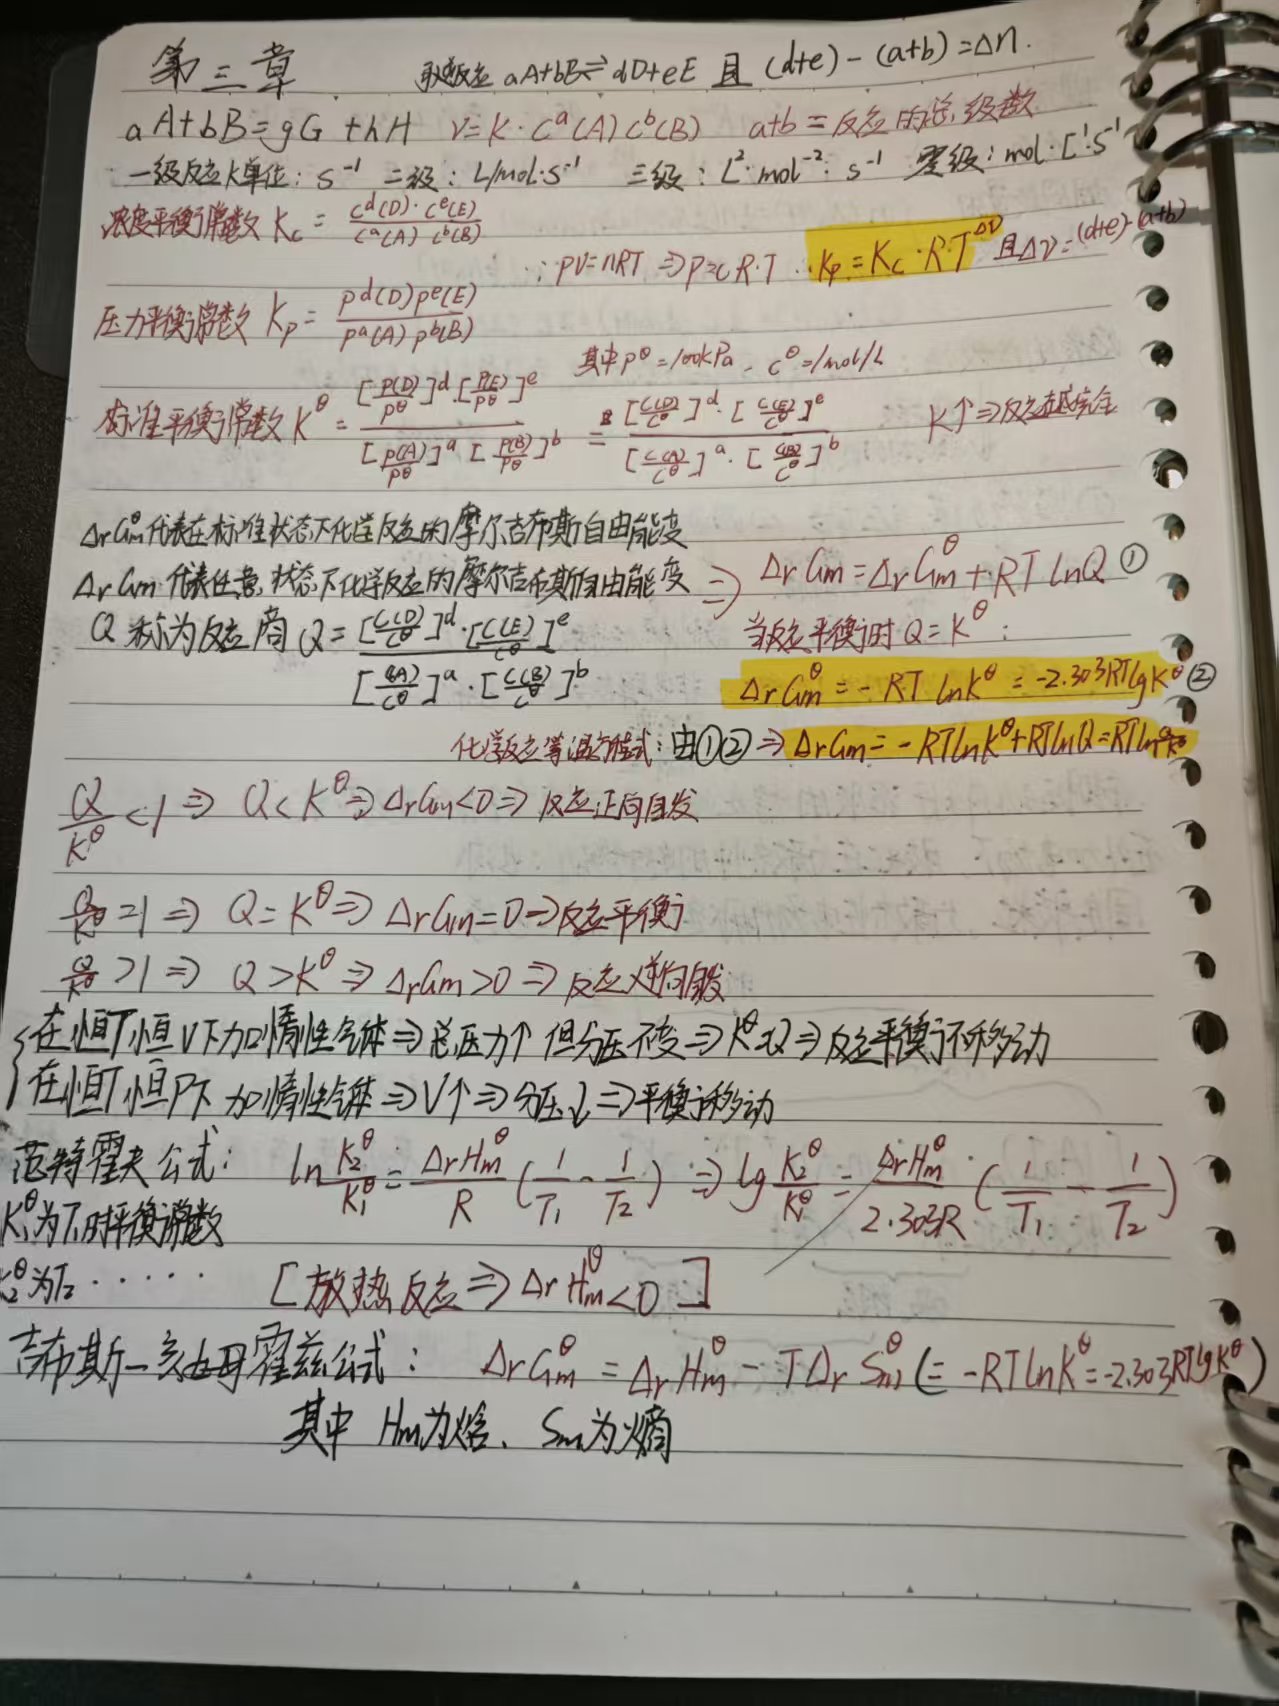 第三章 取反应 aA+bB⇌dD+eE 且 (d+e)-(a+b)=Δn.
aA+bB=gG+hH v=k·cᵃ(A)cᵇ(B) a+b=反应的总级数
一级反应k单位：s⁻¹ 二级：L/mol·s⁻¹ 三级：L²·mol⁻²·s⁻¹ 零级：mol·L⁻¹·s⁻¹
浓度平衡常数 Kc = cᵈ(D)·cᵉ(E) / cᵃ(A) cᵇ(B)
∵ pV=nRT ⇒ P=cR·T ∴ Kp=Kc·R·T^Δν 且Δν=(d+e)-(a+b)
压力平衡常数 Kp = pᵈ(D)pᵉ(E) / pᵃ(A) pᵇ(B)
其中 p^θ=100kPa、c^θ=1mol/L
标准平衡常数 K^θ = [p(D)/p^θ]ᵈ·[p(E)/p^θ]ᵉ / [p(A)/p^θ]ᵃ·[p(B)/p^θ]ᵇ = [c(D)/c^θ]ᵈ·[c(E)/c^θ]ᵉ / [c(A)/c^θ]ᵃ·[c(B)/c^θ]ᵇ K↑⇒反应越完全
ΔrGm^θ代表在标准状态下化学反应的摩尔吉布斯自由能变
ΔrGm代表任意状态下化学反应的摩尔吉布斯自由能变 ⇒ ΔrGm=ΔrGm^θ+RTlnQ ①
Q称为反应商 Q = [c(D)/c^θ]ᵈ·[c(E)/c^θ]ᵉ / [c(A)/c^θ]ᵃ·[c(B)/c^θ]ᵇ 当反应平衡时 Q=K^θ：
ΔrGm^θ = -RT lnK^θ = -2.303RTlgK^θ ②
化学反应等温方程式：由①②⇒ ΔrGm=-RTlnK^θ+RTlnQ=RTln Q/K^θ
Q/K^θ <1 ⇒ Q<K^θ ⇒ ΔrGm<0 ⇒ 反应正向自发
Q/K^θ =1 ⇒ Q=K^θ ⇒ ΔrGm=0 ⇒ 反应平衡
Q/K^θ >1 ⇒ Q>K^θ ⇒ ΔrGm>0 ⇒ 反应逆向自发
在恒T恒V下加惰性气体⇒总压力↑但分压不变⇒K^θ=Q⇒反应平衡不移动
在恒T恒P下加惰性气体⇒V↑⇒分压↓⇒平衡移动
范特霍夫公式： ln K₂^θ/K₁^θ = ΔrHm^θ/R (1/T₁ - 1/T₂) ⇒ lg K₂^θ/K₁^θ = ΔrHm^θ/2.303R (1/T₁ - 1/T₂)
K₁^θ为T₁时平衡常数
K₂^θ为T₂······ [放热反应⇒ΔrHm^θ<0]
吉布斯-亥姆霍兹公式： ΔrGm^θ = ΔrHm^θ - TΔrSm^θ (= -RTlnK^θ = -2.303RTlgK^θ)
其中 Hm为焓、Sm为熵